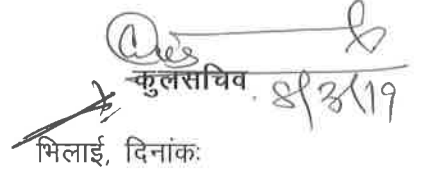 कुलसचिव
8/3/19
भिलाई, दिनांकः